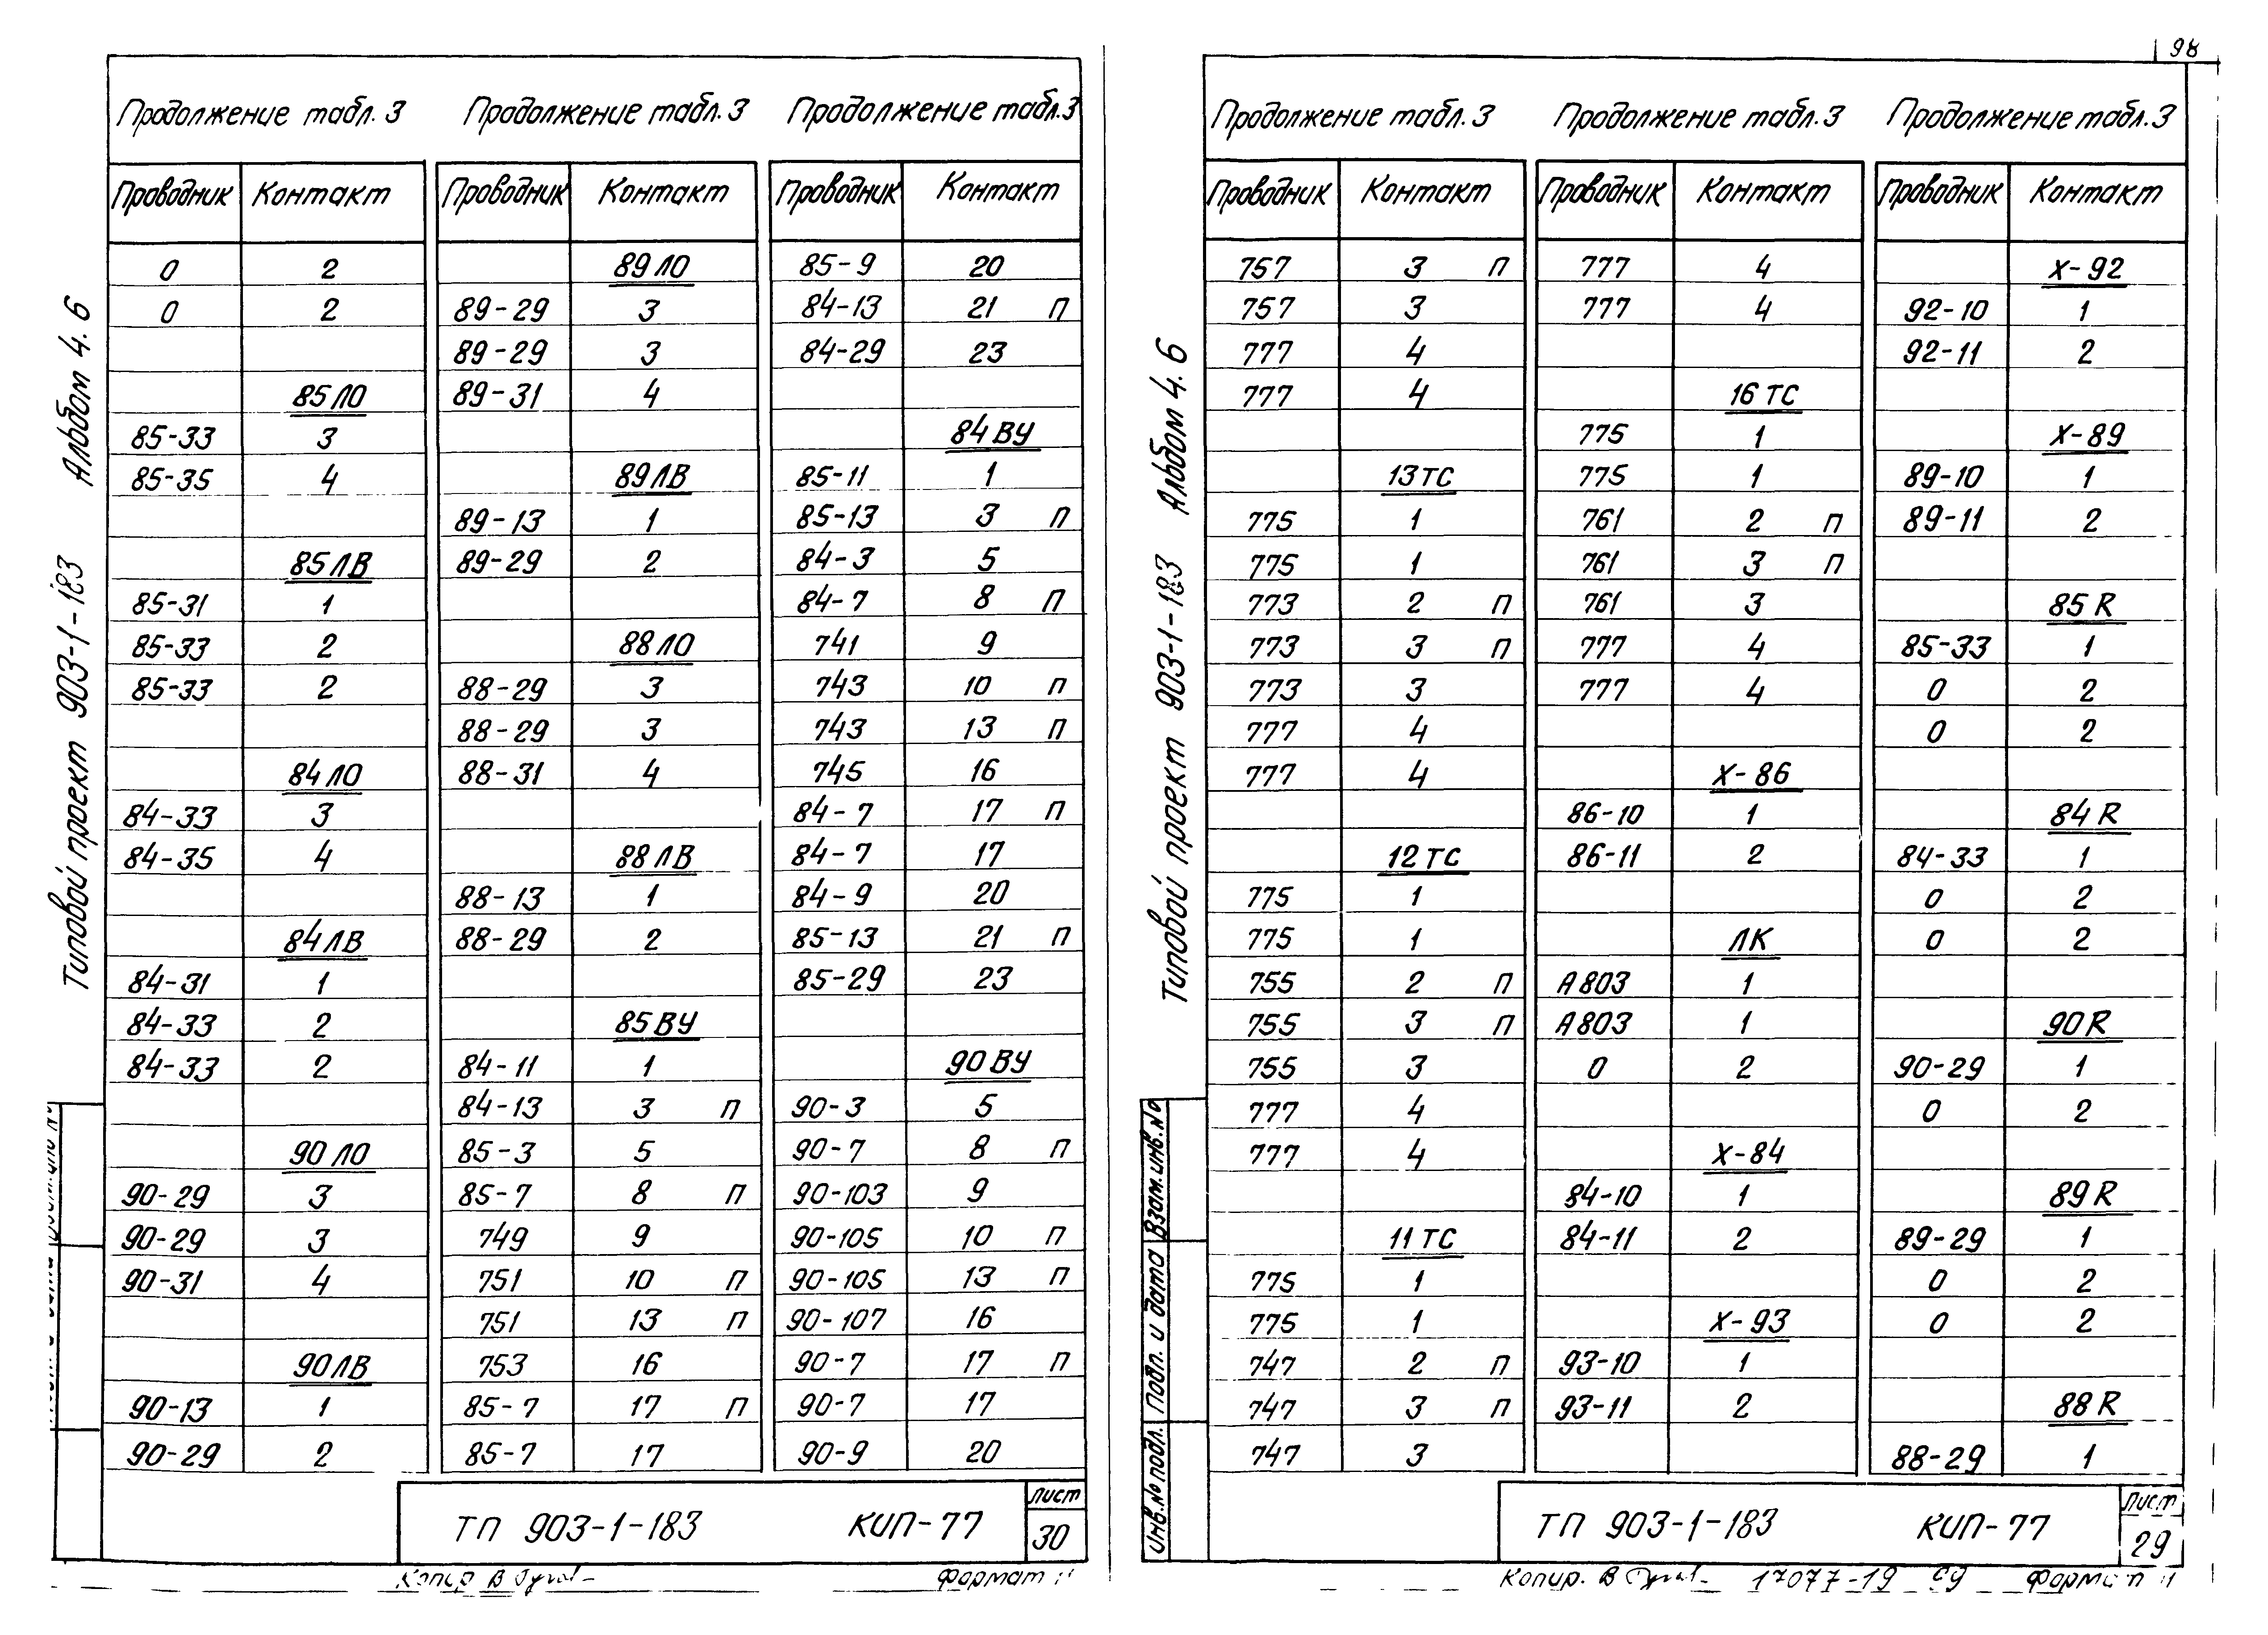 98
Продолжение табл. 3 Продолжение табл. 3 Продолжение табл. 3
Проводник Контакт Проводник Контакт Проводник Контакт
0 2 89ЛО 85-9 20
0 2 89-29 3 84-13 21 п
89-29 3 84-29 23
85ЛО 89-31 4
85-33 3 84ВУ
85-35 4 89ЛВ 85-11 1
89-13 1 85-13 3 п
85ЛВ 89-29 2 84-3 5
85-31 1 84-7 8 п
85-33 2 88ЛО 741 9
85-33 2 88-29 3 743 10 п
88-29 3 743 13 п
84ЛО 88-31 4 745 16
84-33 3 84-7 17 п
84-35 4 88ЛВ 84-7 17
88-13 1 84-9 20
84ЛВ 88-29 2 85-13 21 п
84-31 1 85-29 23
84-33 2 85ВУ
84-33 2 84-11 1 90ВУ
84-13 3 п 90-3 5
90ЛО 85-3 5 90-7 8 п
90-29 3 85-7 8 п 90-103 9
90-29 3 749 9 90-105 10 п
90-31 4 751 10 п 90-105 13 п
751 13 п 90-107 16
90ЛВ 753 16 90-7 17 п
90-13 1 85-7 17 п 90-7 17
90-29 2 85-7 17 90-9 20
ТП 903-1-183 КИП-77 Лист 30
Копир. Формат 11
Типовой проект 903-1-183 Альбом 4.6
Продолжение табл. 3 Продолжение табл. 3 Продолжение табл. 3
Проводник Контакт Проводник Контакт Проводник Контакт
757 3 п 777 4 Х-92
757 3 777 4 92-10 1
777 4 92-11 2
777 4 16ТС
775 1 Х-89
13ТС 775 1 89-10 1
775 1 761 2 п 89-11 2
775 1 761 3 п
773 2 п 761 3 85R
773 3 п 777 4 85-33 1
773 3 777 4 0 2
777 4 0 2
777 4 Х-86
86-10 1 84R
12ТС 86-11 2 84-33 1
775 1 0 2
775 1 ЛК 0 2
755 2 п А803 1
755 3 п А803 1 90R
755 3 0 2 90-29 1
777 4 0 2
777 4 Х-84
84-10 1 89R
11ТС 84-11 2 89-29 1
775 1 0 2
775 1 Х-93 0 2
747 2 п 93-10 1
747 3 п 93-11 2 88R
747 3 88-29 1
ТП 903-1-183 КИП-77 Лист 29
Копир. 17077-19 Формат 11
Типовой проект 903-1-183 Альбом 4.6
Инв.№ подл. Подп. и дата Взам.инв.№